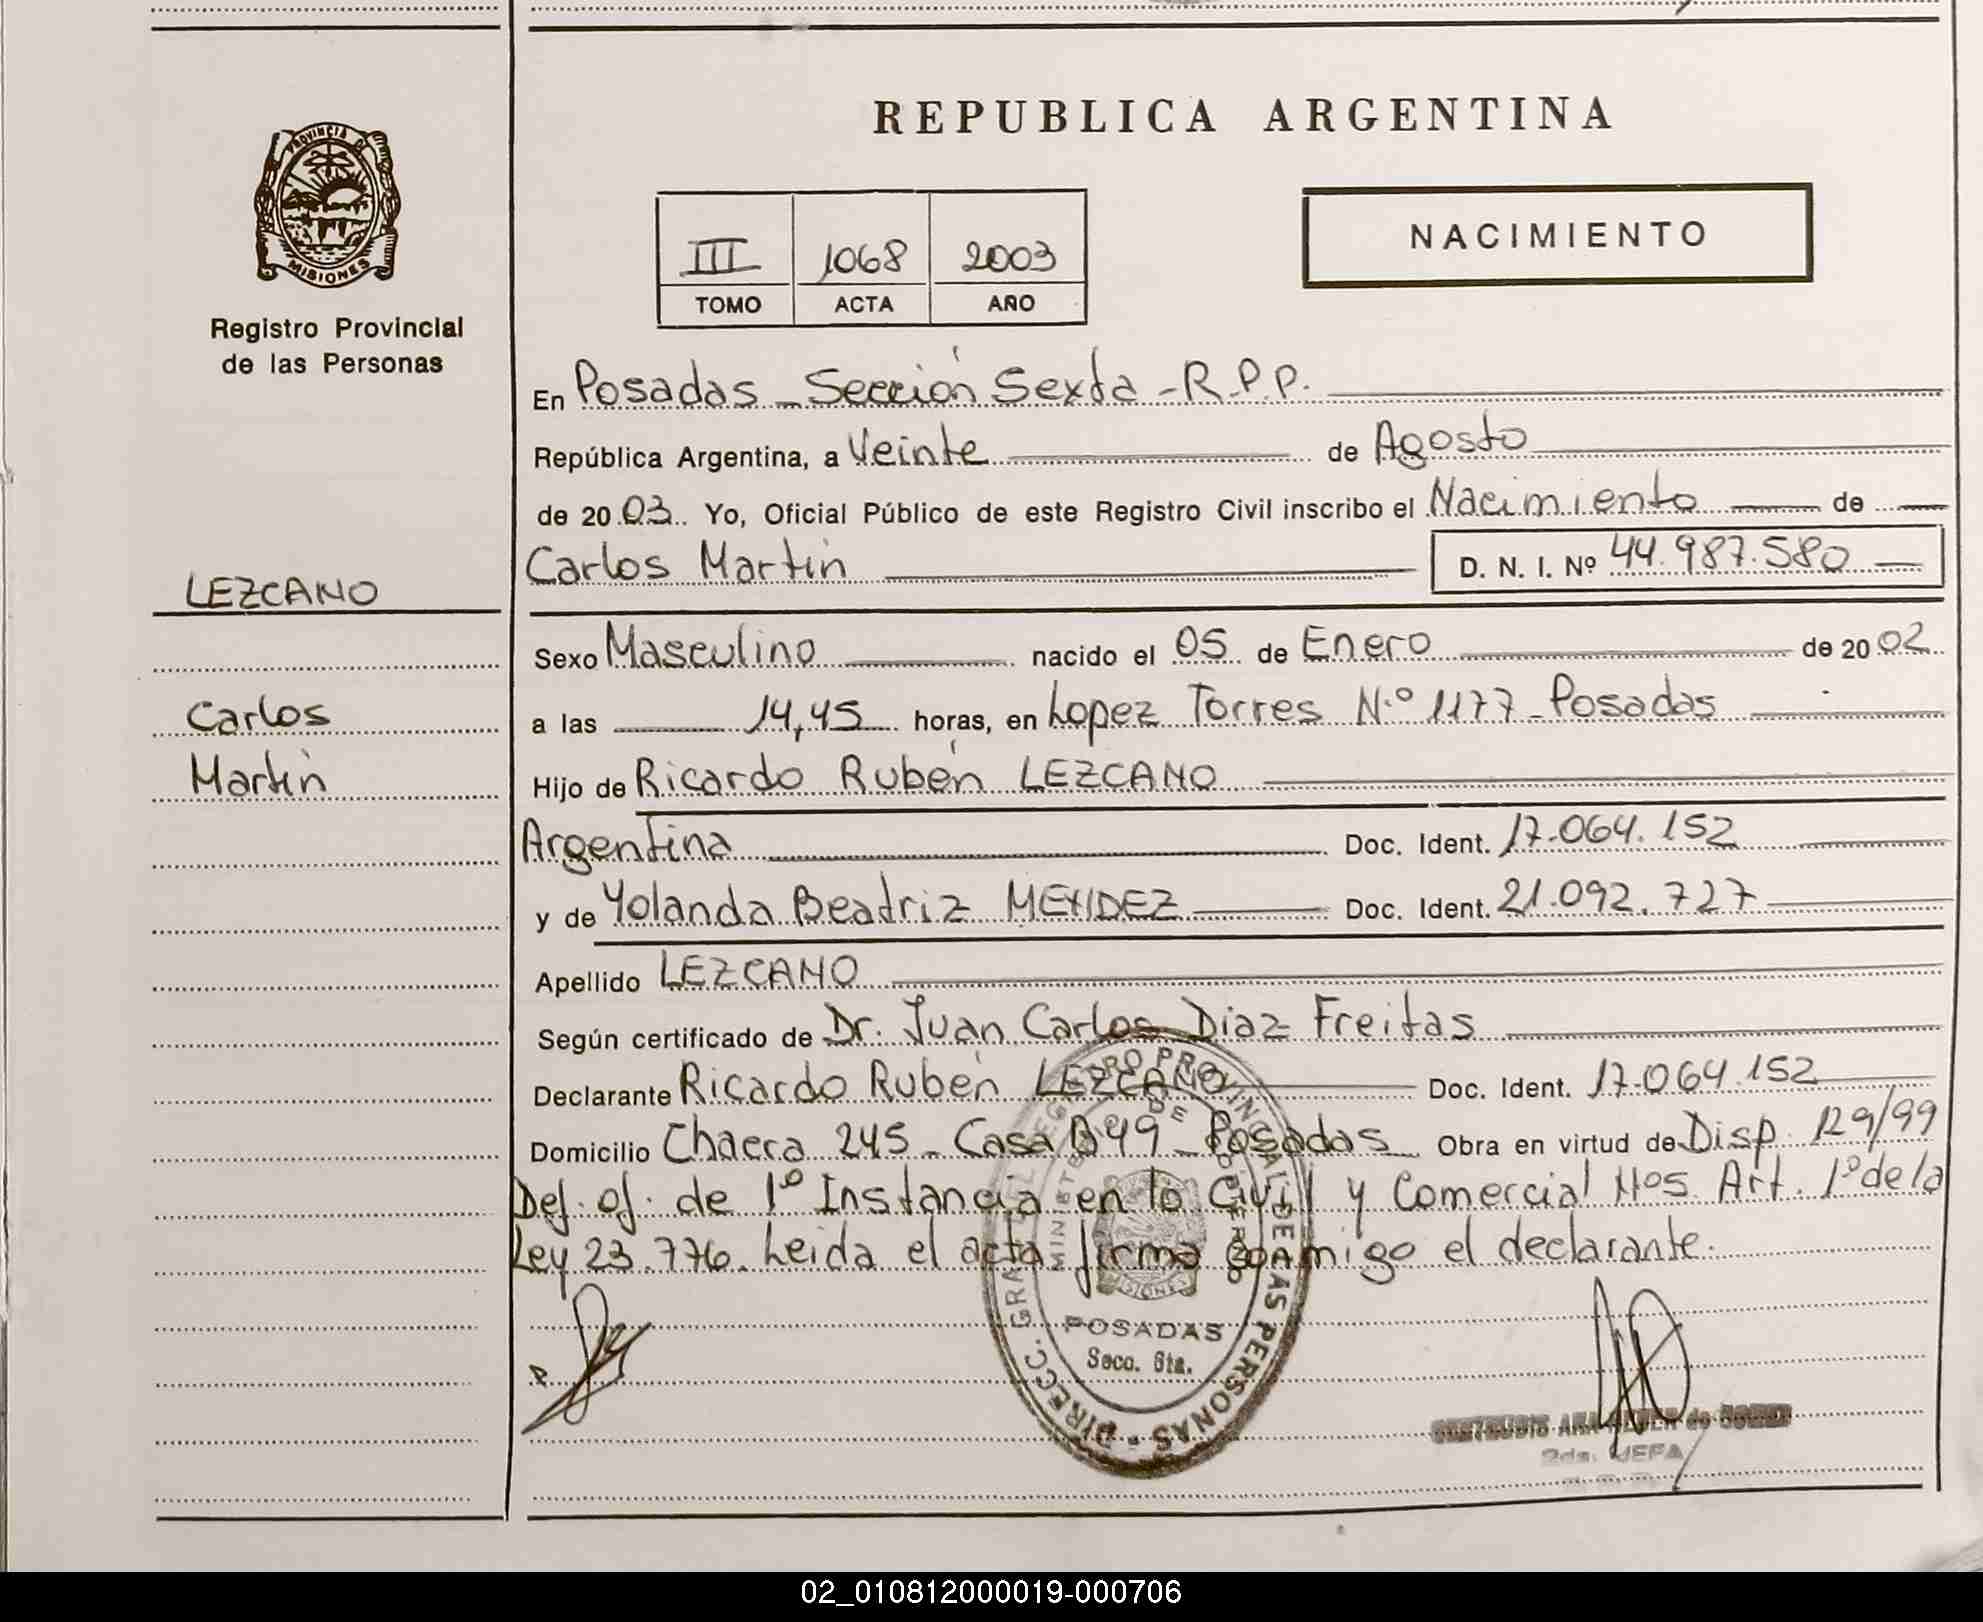 PROVINCIA DE
MISIONES
Registro Provincial
de las Personas
LEZCANO
Carlos
Martín
REPUBLICA ARGENTINA
III 1068 2003
TOMO ACTA AÑO
NACIMIENTO
En Posadas - Sección Sexta - R.P.P.
República Argentina, a Veinte de Agosto
de 2003. Yo, Oficial Público de este Registro Civil inscribo el Nacimiento de
Carlos Martín D. N. I. Nº 44.987.580
Sexo Masculino nacido el 05 de Enero de 2002
a las 14,45 horas, en Lopez Torres N.º 1177 - Posadas
Hijo de Ricardo Rubén LEZCANO
Argentina Doc. Ident. 17.064.152
y de Yolanda Beatriz MENDEZ Doc. Ident. 21.092.727
Apellido LEZCANO
Según certificado de Dr. Juan Carlos Diaz Freitas
Declarante Ricardo Rubén LEZCANO Doc. Ident. 17.064.152
Domicilio Chacra 245 - Casa B49 - Posadas Obra en virtud de Disp. 129/99
Def. of. de 1º Instancia en lo Civil y Comercial Nos. Art. 1º de la
Ley 23.776. Leida el acta firma conmigo el declarante.
DIRECC. GRAL. DEL REGISTRO PROVINCIAL DE LAS PERSONAS
MINISTERIO DE GOBIERNO
MISIONES
POSADAS
Secc. 6ta.
2da. JEFA
02_010812000019-000706